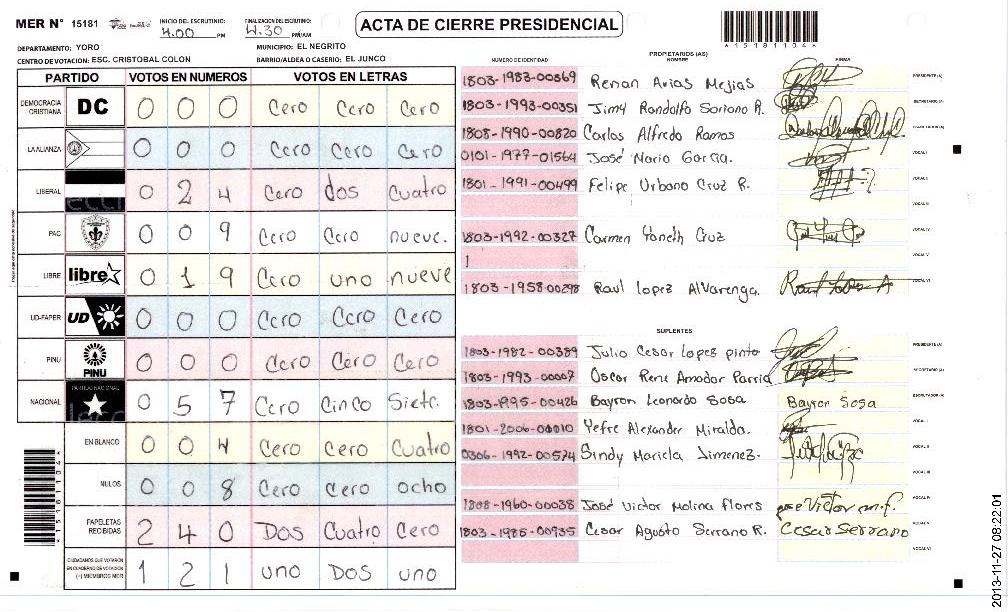 MER N° 15181
INICIO DEL ESCRUTINIO: 4.00 PM
FINALIZACION DEL ESCRUTINIO: 4.30 PM/AM
ACTA DE CIERRE PRESIDENCIAL
*15181104*
DEPARTAMENTO: YORO
MUNICIPIO: EL NEGRITO
CENTRO DE VOTACION: ESC. CRISTOBAL COLON
BARRIO/ALDEA O CASERIO: EL JUNCO
PARTIDO VOTOS EN NUMEROS VOTOS EN LETRAS
DEMOCRACIA CRISTIANA DC 0 0 0 Cero Cero Cero
LA ALIANZA 0 0 0 Cero Cero Cero
LIBERAL 0 2 4 Cero dos Cuatro
PAC 0 0 9 Cero Cero nueve.
LIBRE libre 0 1 9 Cero uno nueve
UD-FAPER UD 0 0 0 Cero Cero Cero
PINU PINU 0 0 0 Cero Cero Cero
NACIONAL PARTIDO NACIONAL 0 5 7 Cero Cinco Siete.
EN BLANCO 0 0 4 Cero Cero Cuatro
NULOS 0 0 8 Cero Cero ocho
PAPELETAS RECIBIDAS 2 4 0 Dos Cuatro Cero
CIUDADANOS QUE VOTARON EN CUADERNO DE VOTACION (+) MIEMBROS MER 1 2 1 uno Dos uno
PROPIETARIOS (AS)
NUMERO DE IDENTIDAD NOMBRE FIRMA
1803-1983-00369 Renan Arias Mejias PRESIDENTE (A)
1803-1993-00351 Jimy Randolfo Soriano R. SECRETARIO (A)
1808-1990-00820 Carlos Alfredo Ramos ESCRUTADOR (A)
0101-1977-01564 José Mario Garcia. VOCAL I
1801-1991-00499 Felipe Urbano Cruz R. VOCAL II
VOCAL III
1803-1992-00327 Carmen Yaneth Cruz VOCAL IV
VOCAL V
1803-1958-00298 Raul Lopez Alvarenga. VOCAL VI
SUPLENTES
1803-1982-00389 Julio Cesar Lopes pinto PRESIDENTE (A)
1803-1993-00007 Oscar Rene Amador Parria SECRETARIO (A)
1803-1995-00426 Bayron Leonardo Sosa Bayron Sosa ESCRUTADOR (A)
1801-2006-00010 Yefre Alexander Miralda. VOCAL I
0306-1992-00574 Sindy Mariela Jimenez. VOCAL II
VOCAL III
1808-1960-00038 José Victor Molina flores jose Victor m.f. VOCAL IV
1803-1985-00935 Cesar Agusto Serrano R. Cesar Serrano VOCAL V
VOCAL VI
*15181104*
2013-11-27 08:22:01